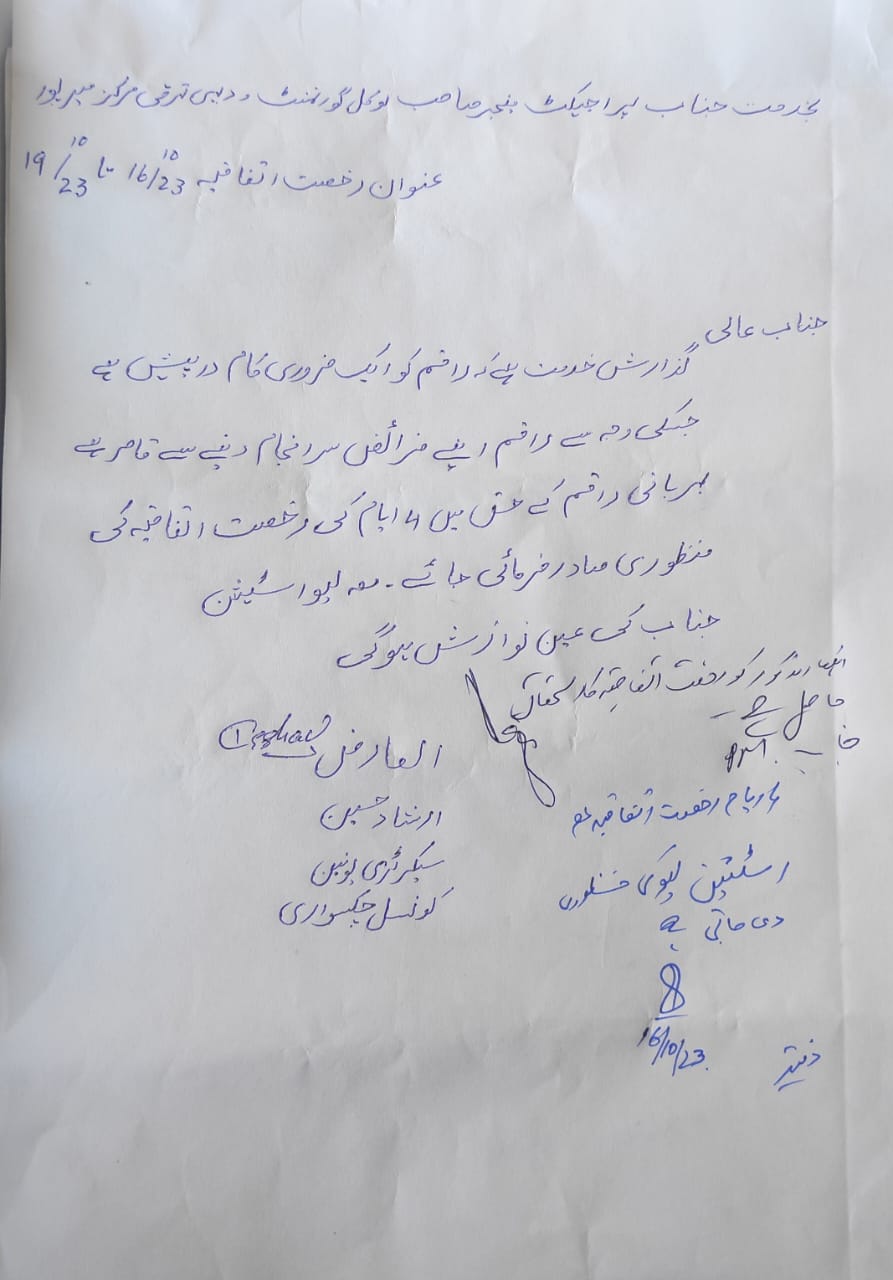 بخدمت جناب پراجیکٹ منیجر صاحب لوکل گورنمنٹ و دیہی ترقی مرکز میرپور
عنوان رخصت اتفاقیہ 16/10/23 تا 19/10/23
جناب عالی
گذارش خدمت ہے کہ راقم کو ایک ضروری کام درپیش ہے
جسکی وجہ سے راقم اپنے فرائض سرانجام دینے سے قاصر ہے
مہربانی راقم کے حق میں 4 ایام کی رخصت اتفاقیہ کی
منظوری صادر فرمائی جائے ۔ معہ لیو اسٹیشن
جناب کی عین نوازش ہوگی
کو رخصت اتفاقیہ کا استحقاق
حاصل ہے ۔
العارض
ارشاد حسین
سیکرٹری یونین
کونسل چکسواری
رخصت اتفاقیہ مع
اسٹیشن لیو کی منظوری
دی جاتی ہے
16/10/23
دفتر